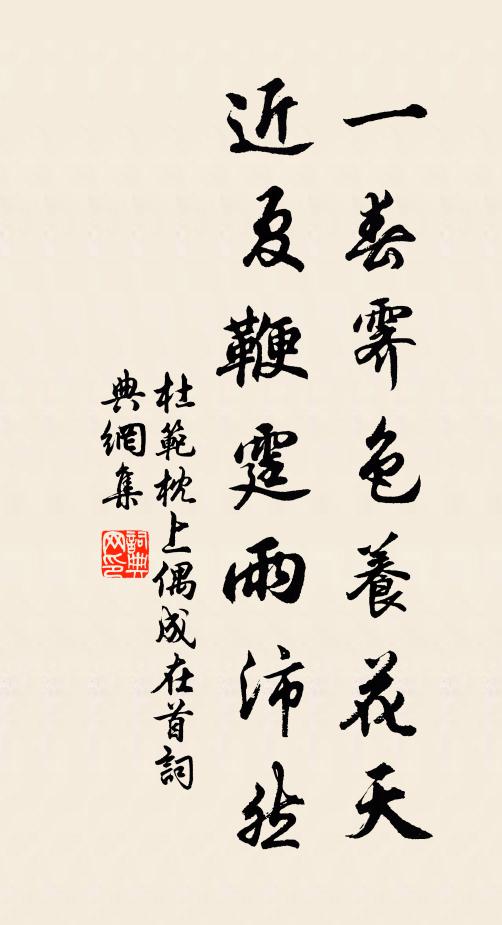 一春霽色養花天
近夏鞭霆雨沛然
杜範枕上偶成在首詞
典網集
詞典
网印